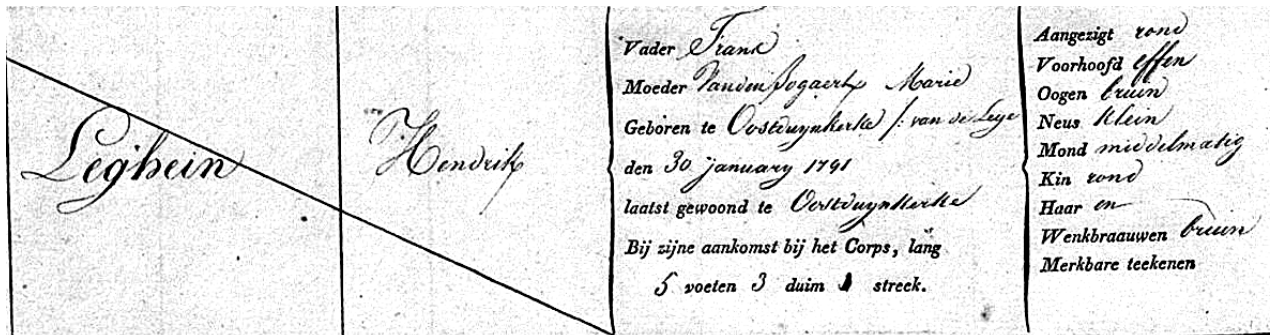 Leghein
Hendrik
Vader Frans
Moeder Vanden Bogaerk Marie
Geboren te Oostduynkerke /: van de Leije
den 30 january 1791
laatst gewoond te Oostduynkerke
Bij zijne aankomst bij het Corps, lang
5 voeten 3 duim 1 streek.
Aangezigt rond
Voorhoofd effen
Oogen bruin
Neus Klein
Mond middelmatig
Kin rond
Haar en
Wenkbraauwen bruin
Merkbare teekenen